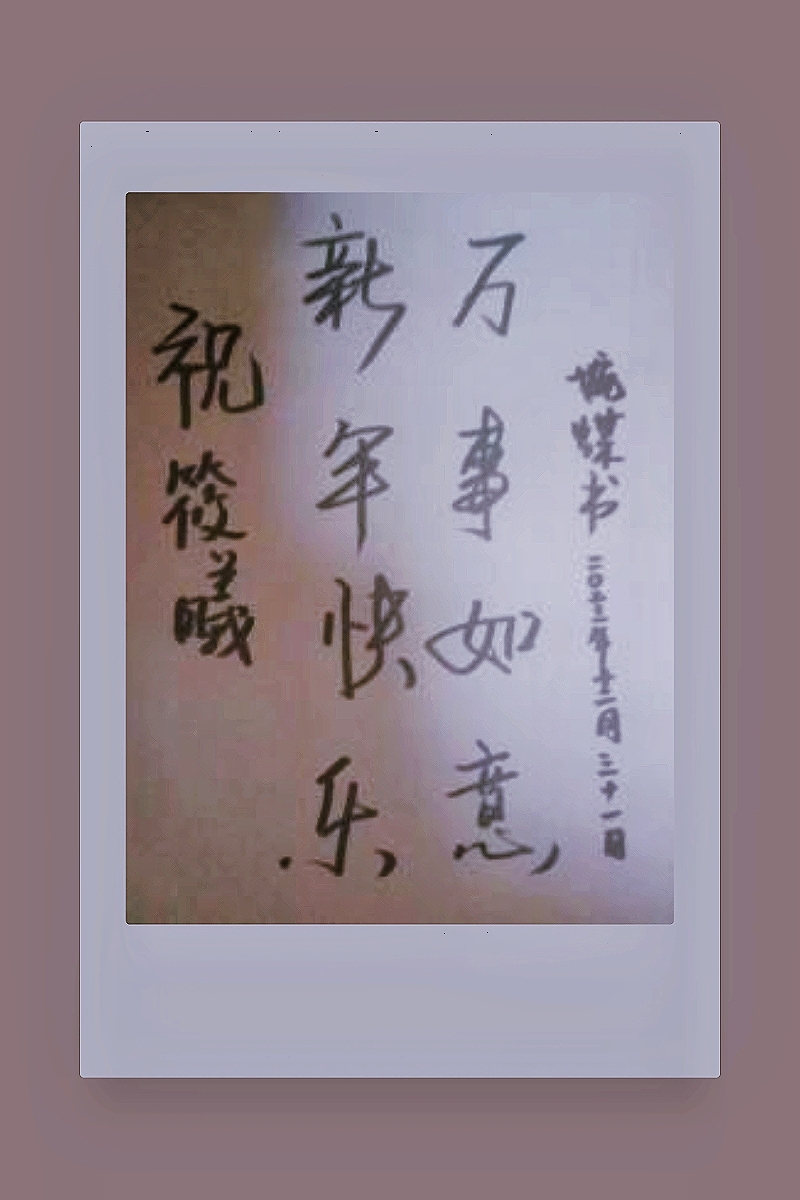 祝筱曦
新年快乐
万事如意
书
二〇二三年十二月三十一日